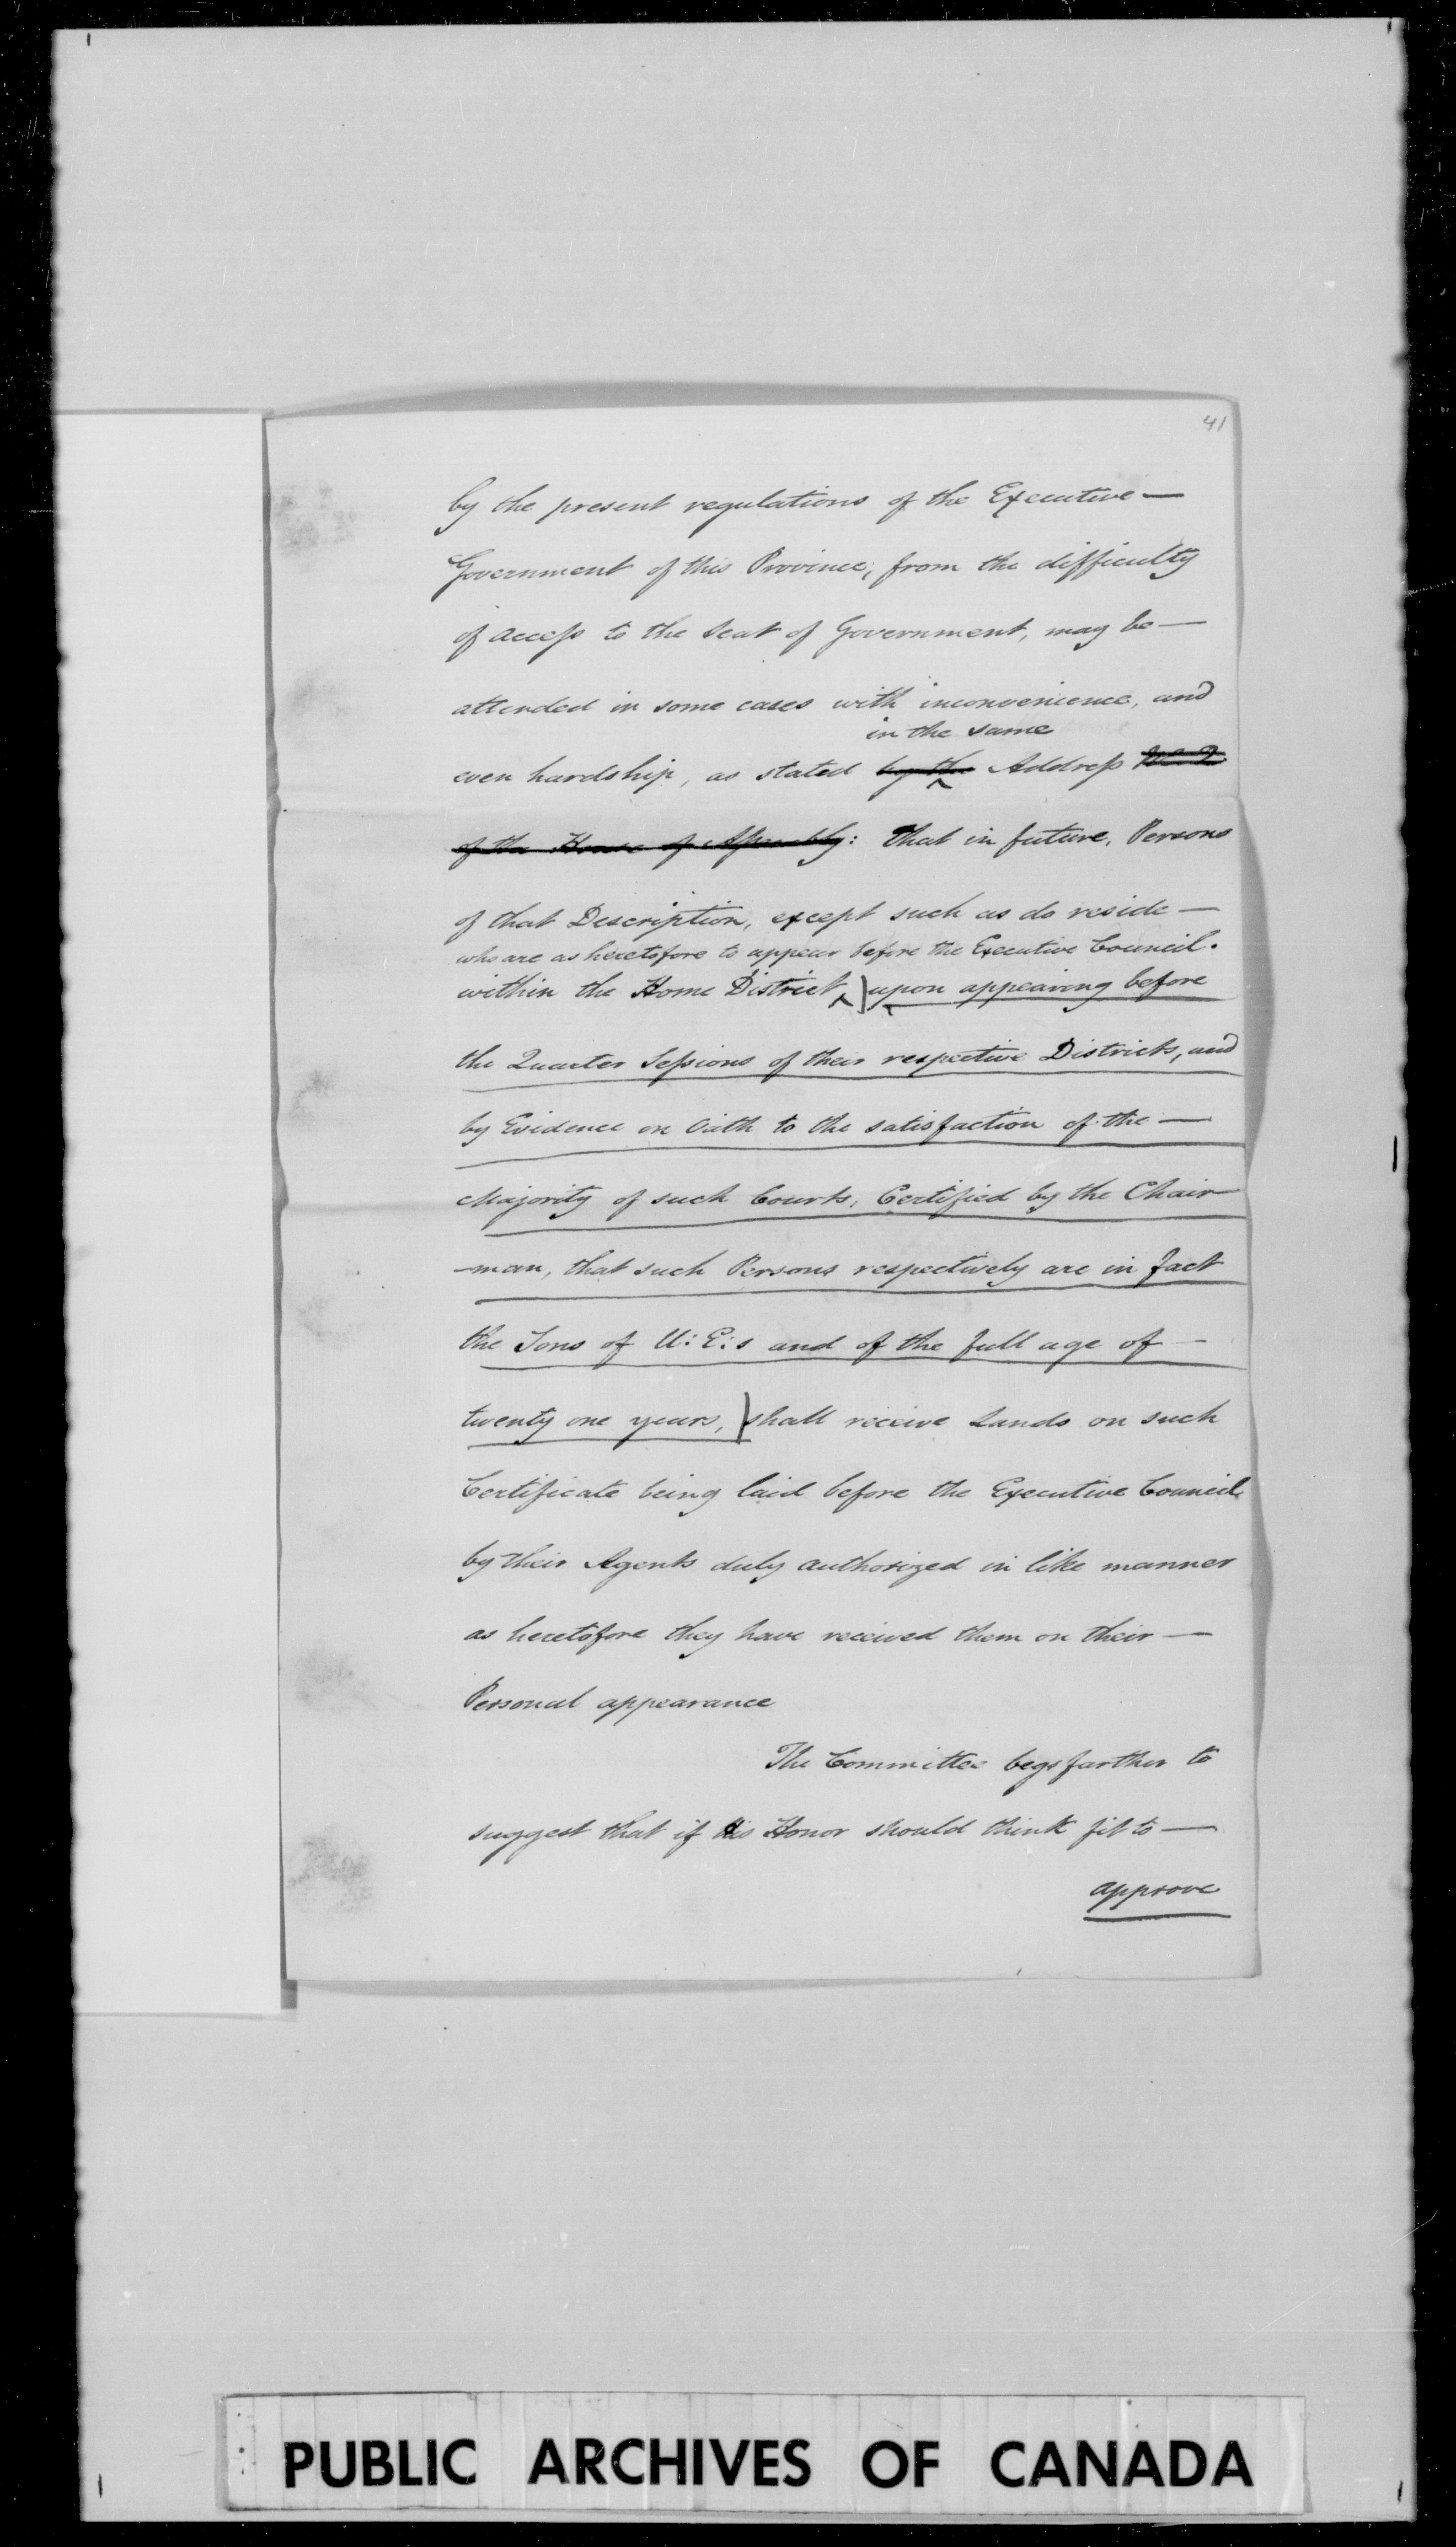 41
by the present regulations of the Executive —
Government of this Province, from the difficulty
of access to the Seat of Government, may be —
attended in some cases with inconvenience, and
in the same
even hardship, as stated by the Address
of the House of Assembly: that in future, Persons
of that Description, except such as do reside —
who are as heretofore to appear before the Executive Council.
within the Home District, ] upon appearing before
the Quarter Sessions of their respective Districts, and
by Evidence on Oath to the satisfaction of the —
Majority of such Courts, Certified by the Chair
-man, that such Persons respectively are in fact
the Sons of U: E:s and of the full age of —
twenty one years, shall receive Lands on such
Certificate being laid before the Executive Council
by their Agents duly authorized in like manner
as heretofore they have received them on their —
Personal appearance
The Committee begs farther to
suggest that if His Honor should think fit to —
approve
PUBLIC ARCHIVES OF CANADA